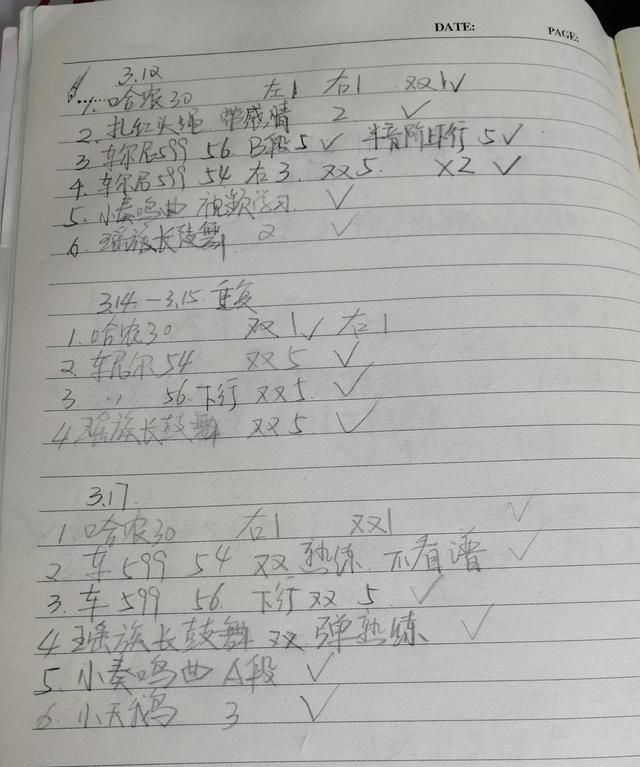 DATE: PAGE:
3.12
1. 哈农30 左1 右1 双1✓
2. 扎红头绳 带感情 2 ✓
3 车尔尼599 56 B段5 ✓ 半音阶下行 5✓
4. 车尔尼599 54 右3. 双5. ×2 ✓
5. 小奏鸣曲 视频学习. ✓
6. 瑶族长鼓舞 2 ✓
3.14.—3.15. 重复
1. 哈农30 双1✓ 右1
2. 车尼尔54 双5 ✓
3 〃 56. 下行 双5. ✓
4. 瑶族长鼓舞 双5. ✓
3.17.
1. 哈农30 右1 双1 ✓
2. 车599 54 双 熟练. 不看谱 ✓
3. 车599 56. 下行双 5. ✓
4 瑶族长鼓舞 双. 弹熟练 ✓
5. 小奏鸣曲 A段 ✓
6. 小天鹅 3 ✓